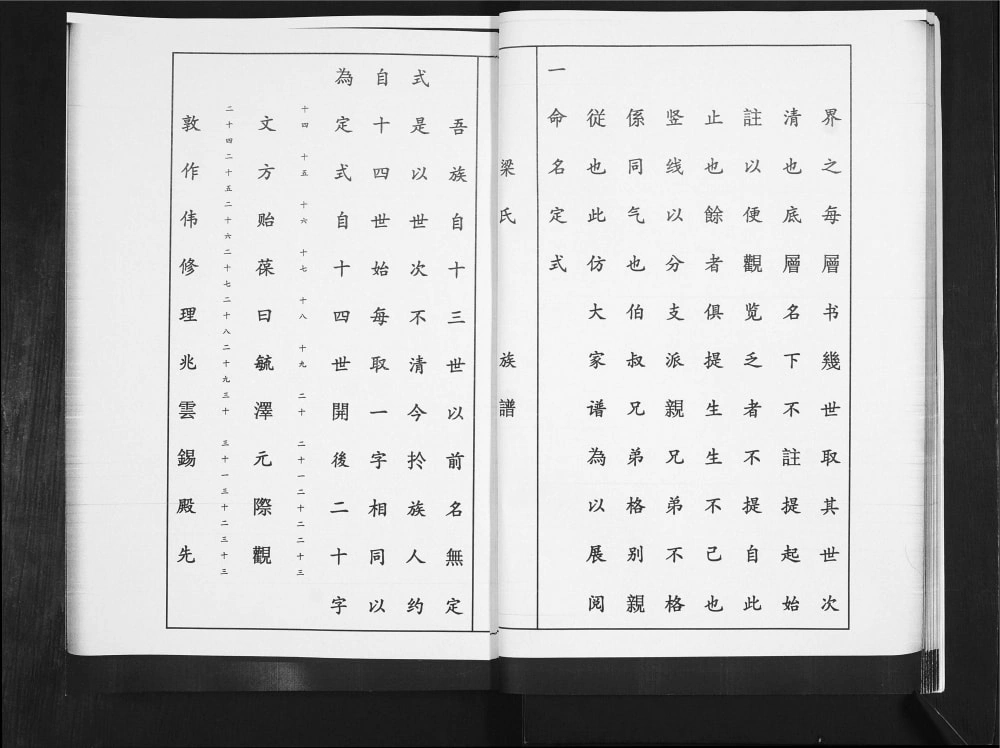 界之每層书幾世取其世次
清也底層名下不註提起始
註以便觀览乏者不提自此
止也餘者俱提生生不己也
竖线以分支派親兄弟不格
係同气也伯叔兄弟格别親
従也此仿大家谱為以展阅
一命名定式
梁氏族譜
吾族自十三世以前名無定
式是以世次不清今扵族人约
自十四世始每取一字相同以
為定式自十四世開後二十字
十四 十五 十六 十七 十八 十九 二十 二十一 二十二 二十三
文方贻葆曰毓澤元際觀
二十四 二十五 二十六 二十七 二十八 二十九 三十 三十一 三十二 三十三
敦作伟修理兆雲錫殿先